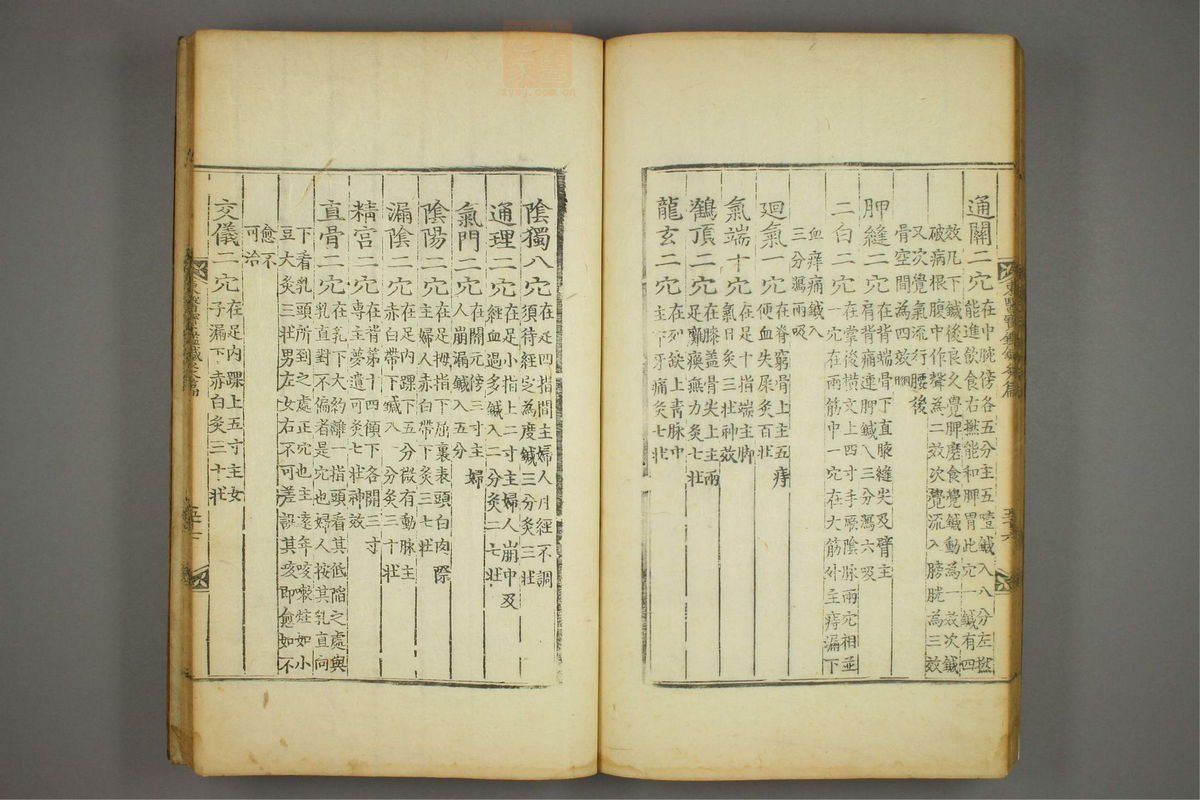 通關二穴 在中脘傍各五分主五噎鍼入八分左撚
能進飮食右撚能和脾胃此穴一鍼有四
效凡下鍼後良久覺脾磨食覺鍼動為一效次鍼
破病根腹中作聲為二效次覺流入膀胱為三效
又次覺氣流行腰後
骨空間為四效
胛縫二穴 在背端骨下直腋縫尖及臂主
肩背痛連胛鍼入三分瀉六吸
二白二穴 在掌後橫文上四寸手厥陰脉兩穴相並
一穴在兩筋中一穴在大筋外主痔漏下
血痒痛鍼入
三分瀉兩吸
迴氣一穴 在脊窮骨上主五痔
便血失屎灸百壯
氣端十穴 在足十指端主脚
氣日灸三壯神效
鶴頂二穴 在膝盖骨尖上主兩
足癱瘓無力灸七壯
龍玄二穴 在列缺上青脉中
主下牙痛灸七壯
陰獨八穴 在足四指間主婦人月經不調
須待經定為度鍼三分灸三壯
通理二穴 在足小指上二寸主婦人崩中及
經血過多鍼入二分灸二七壯
氣門二穴 在關元傍三寸主婦
人崩漏鍼入五分
陰陽二穴 在足拇指下屈裏表頭白肉際
主婦人赤白帶下灸三七壯
漏陰二穴 在足內踝下五分微有動脉主
赤白帶下鍼入一分灸三十壯
精宮二穴 在背第十四顀下各開三寸
專主夢遺可灸七壯神效
直骨二穴 在乳下大約離一指頭看其低陷之處與
乳直對不偏者是穴也婦人按其乳直向
下看乳頭所到之處正穴也主遠年咳嗽炷如小
豆大灸三壯男左女右不可差誤其咳即愈如不
愈不
可治
交儀二穴 在足內踝上五寸主女
子漏下赤白灸三十壯